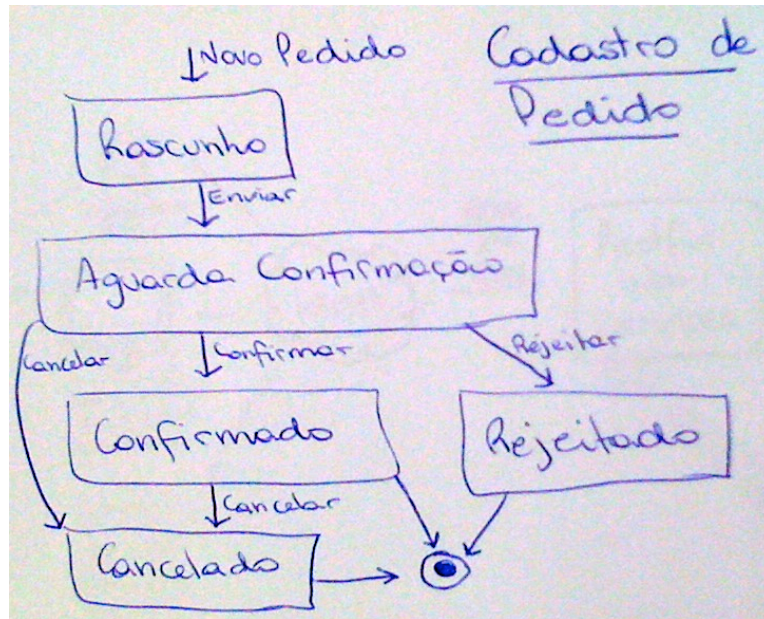 Novo Pedido
Cadastro de
Pedido
Rascunho
Enviar
Aguarda Confirmação
Cancelar
Confirmar
Rejeitar
Confirmado
Rejeitado
Cancelar
Cancelado